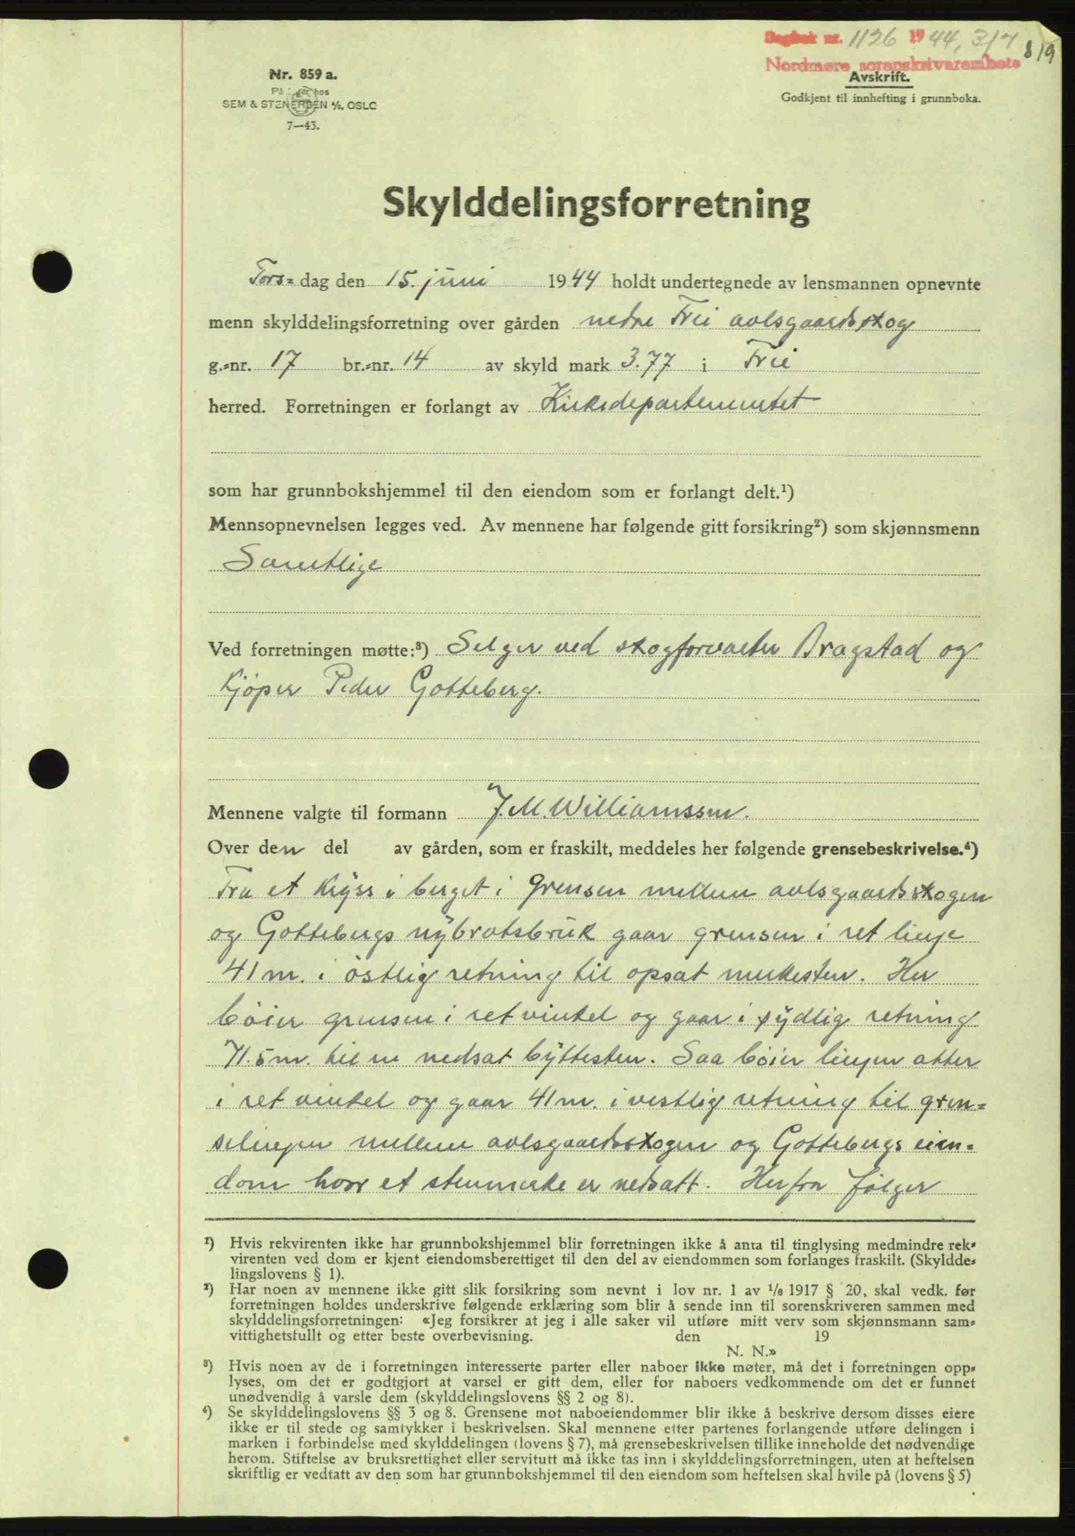 Dagbok nr. 1126 1944, 3/7
Nordmøre sorenskriverembete
8/9
Avskrift.
Godkjent til innhefting i grunnboka.
Nr. 859 a.
På lager hos
SEM & STENERSEN A/S, OSLO
7—43.
Skylddelingsforretning
Tors= dag den 15. juni 1944 holdt undertegnede av lensmannen opnevnte
menn skylddelingsforretning over gården nedre Frei avlsgaardsskog
g.=nr. 17 br.=nr. 14 av skyld mark 3.77 i Frei
herred. Forretningen er forlangt av Kirkedepartementet
som har grunnbokshjemmel til den eiendom som er forlangt delt.¹)
Mennsopnevnelsen legges ved. Av mennene har følgende gitt forsikring²) som skjønnsmenn
Samtlige
Ved forretningen møtte:³) Selger ved skogforvalter Bragstad og
kjöper Peder Gotteberg.
Mennene valgte til formann J. M. Williamssen.
Over den del av gården, som er fraskilt, meddeles her følgende grensebeskrivelse.⁴)
Fra et kryss i berget i grensen mellem avlsgaardsskogen
og Gottebergs nybrotsbruk gaar grensen i ret linje
41 m. i östlig retning til opsat merkesten. Her
böier grensen i ret vinkel og gaar i sydlig retning
71.5 m. til en nedsat byttesten. Saa böier linjen atter
i ret vinkel og gaar 41 m. i vestlig retning til gren=
selinjen mellem avlsgaardsskogen og Gottebergs eien=
dom hvor et stenmerke er nedsatt. Herfra følger
¹) Hvis rekvirenten ikke har grunnbokshjemmel blir forretningen ikke å anta til tinglysing medmindre rek=
virenten ved dom er kjent eiendomsberettiget til den del av eiendommen som forlanges fraskilt. (Skyldde=
lingslovens § 1).
²) Har noen av mennene ikke gitt slik forsikring som nevnt i lov nr. 1 av ¹/₆ 1917 § 20, skal vedk. før
forretningen holdes underskrive følgende erklæring som blir å sende inn til sorenskriveren sammen med
skylddelingsforretningen: «Jeg forsikrer at jeg i alle saker vil utføre mitt verv som skjønnsmann sam=
vittighetsfullt og etter beste overbevisning. den 19
N. N.»
³) Hvis noen av de i forretningen interesserte parter eller naboer ikke møter, må det i forretningen opp=
lyses, om det er godtgjort at varsel er gitt dem, eller for naboers vedkommende om det er funnet
unødvendig å varsle dem (skylddelingslovens §§ 2 og 8).
⁴) Se skylddelingslovens §§ 3 og 8. Grensene mot naboeiendommer blir ikke å beskrive dersom disses eiere
ikke er til stede og samtykker i beskrivelsen. Skal mennene etter partenes forlangende utføre delingen i
marken i forbindelse med skylddelingen (lovens § 7), må grensebeskrivelsen tillike inneholde det nødvendige
herom. Stiftelse av bruksrettighet eller servitutt må ikke tas inn i skylddelingsforretningen, uten at heftelsen
skriftlig er vedtatt av den som har grunnbokshjemmel til den eiendom som heftelsen skal hvile på (lovens § 5)